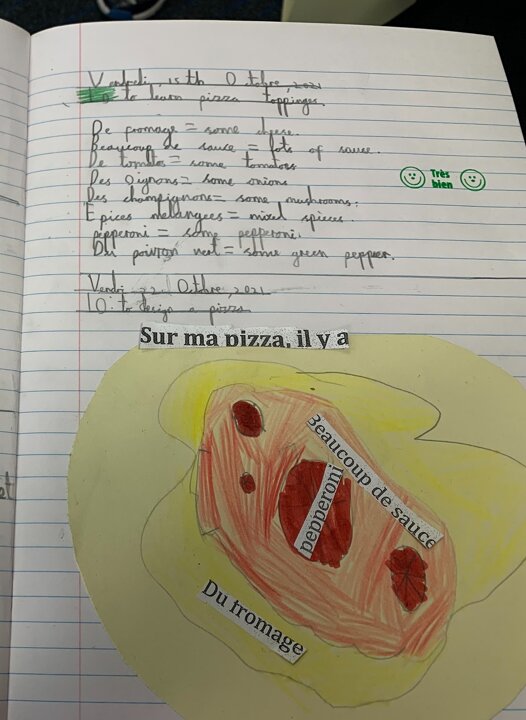 Vendredi, 15th Octobre, 2021
LO to learn pizza toppings
De fromage = some cheese.
Beaucoup de sauce = lots of sauce.
De tomates = some tomatoes
Des Oignons = some onions
Des champignons = some mushrooms.
Epices mélangées = mixed spieces.
pepperoni = some pepperoni.
Du poivron vert = some green pepper.
Très
bien
Vendri 22 Octobre, 2021
LO: to design a pizza
Sur ma pizza, il y a
Beaucoup de sauce
pepperoni
Du fromage
et